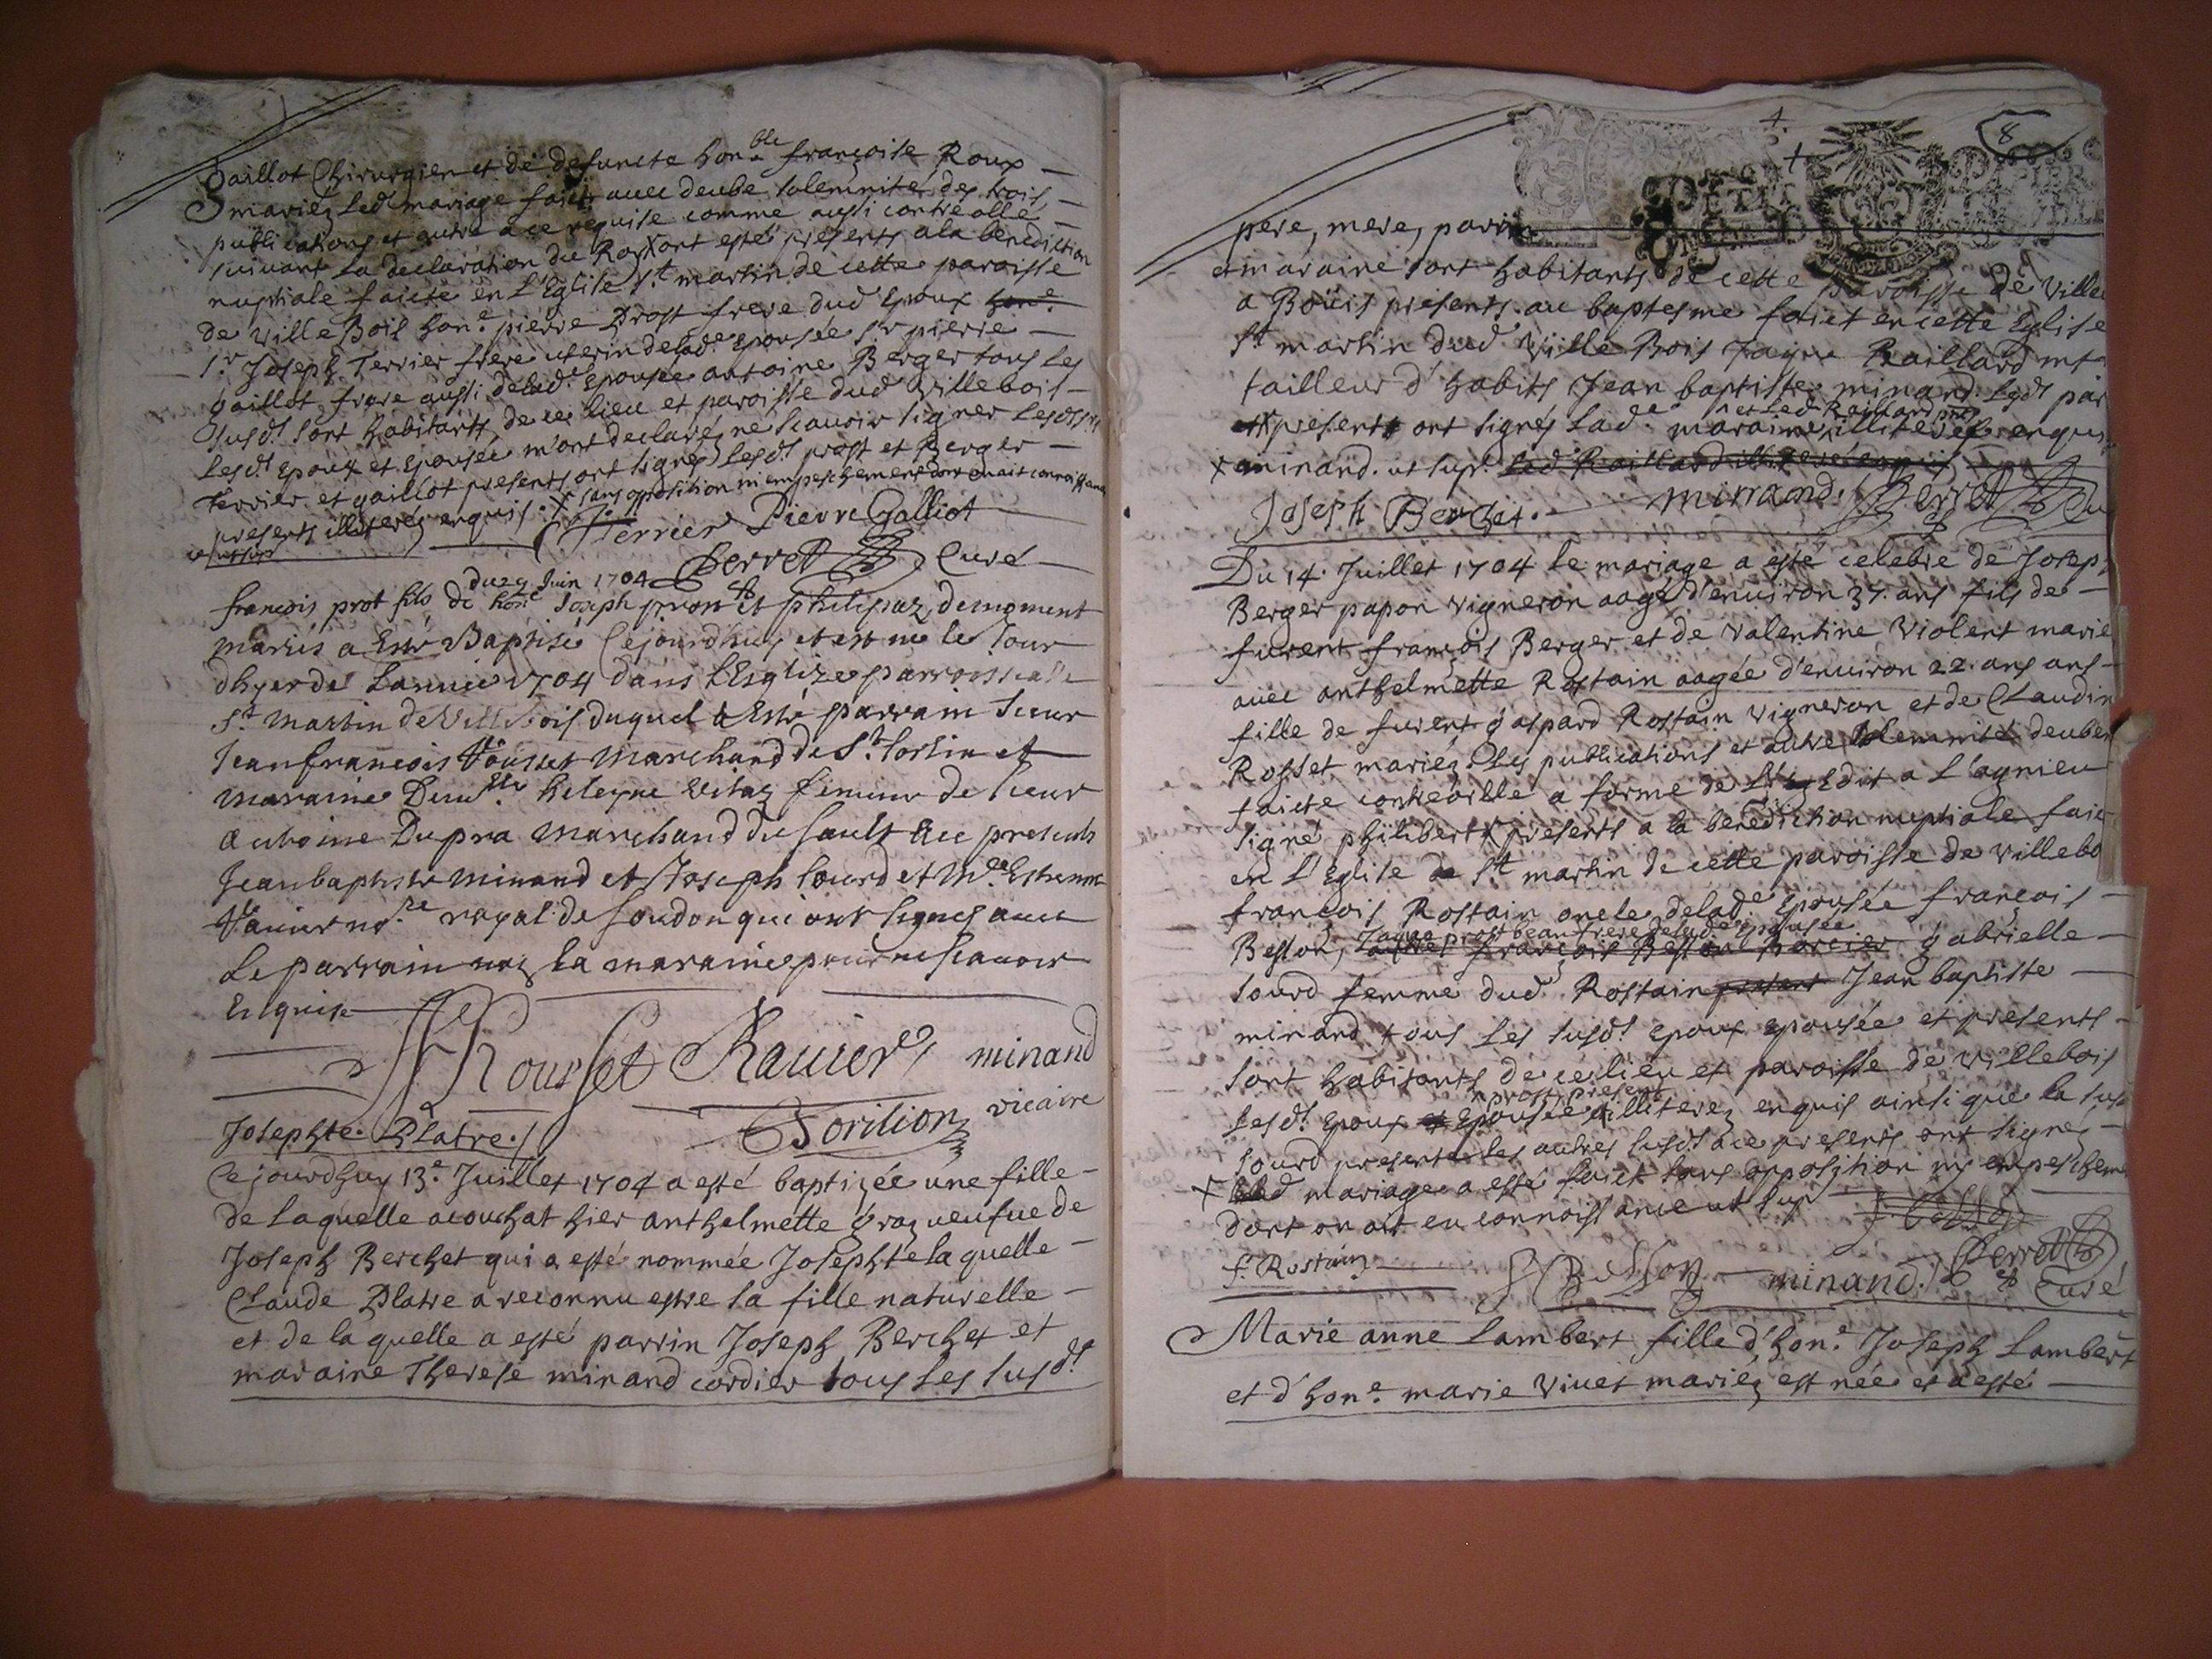 gaillot Chirurgien et de defuncte hon.ble françoise Roux
mariéz led mariage faict avec deube solemnité des trois
publications et autre a ce requise comme aussi controllé
suivant la declaration du Roy X ont esté presents a la benediction
nuptiale faicte en L'Eglise St martin de cette paroisse
de Ville Bois hon.e pierre Prost frere dud Epoux hon.e
Sr Joseph Terrier frere uterin delad.e Epousée Sr pierre
gaillot frere aussi delad.e Epousée antoine Berger tous les
susd.t sont habitants de ce lieu et paroisse dud Villebois
Lesd.t Epoux et Epousée m'ont declaréz ne scavoir signer Lesd.ts
Terrier et gaillot presents ont signéz Lesd.t prost et Berger
presents illiteréz enquis. X sans opposition ni empeschement dont on ait connoissance
Terrier Pierre Galliot
Perret Curé
du 29 Juin 1704
françois prot fils de hon.e Joseph prost et philipaz demoment
mariés a Esté Baptisé Cejourdhuy et est né le Jour
dhyer de Lannée 1704 dans L'Esglize parroissialle
St Martin de Villebois duquel a Esté parrain sieur
Jean francois Rousset Marchand de St Sorlin et
maraine Dem.lle heleyne Vitaz femme de sieur
Anthoine Dupra Marchand du Sault Ace presents
Jean baptiste Minand et Joseph Sourd et M.e Estienne
Ravier no.re royal de Soudon qui ont signés avec
Le parrain non la maraine pour ne scavoir
Enquise
Rousset Ravier minand
Sorilion vicaire
Josephte Platre./
Cejourdhuy 13.e Juillet 1704 a esté baptizée une fille
de laquelle acouchat hier anthelmette graz veufve de
Joseph Berchet qui a esté nommée Josephte laquelle
Claude Platre a reconnu estre sa fille naturelle
et de laquelle a esté parrin Joseph Berchet et
maraine Therese minand cordier tous les susd.t
8
pere, mere, parrin
et maraine sont habitants de cette paroisse de Ville
a Boüis presents au baptesme faict en cette Eglise
St martin dud Ville Bois Jayme Raillard mt
tailleur d'habits Jean baptiste minand Lesd.t par
presents ont signés Lad.e maraine et Led Raillard illiteréz enquis
X minand ut sup. Led Raillard illiteré enquis
Joseph Berchet. minand. Perret Cu
Du 14. Juillet 1704 le mariage a esté celebré de Josep
Berger papon vigneron aagé d'environ 37. ans fils de
furent françois Berger et de Valentine Violent marie
avec anthelmette Rostain aagée d'environ 22. ans ans
fille de furent gaspard Rostain vigneron et de Claudin
Rosset mariéz Les publications et autre solemnité deuben
faicte controollé a forme de L'Edit a Lagnieu
signé philibert X presents a la benediction nuptiale faic
en L'Eglise de St martin de cette paroisse de villebo
françois Rostain oncle delad.e Epousée françois
Jayme prost beau frere delad.e Epousée
Besson, françois Besson gabrielle
sourd femme dud Rostain present Jean baptiste
minand tous Les susd.t epoux epousée et presents
sont habitants de ce lieu et paroisse de villebois
prost present
Lesd.t Epoux et Epousée illiteréz enquis ainsi que la sus
sourd presente les autres susd.t a ce presents ont signéz
X Led mariage a esté faict sans opposition ny empeschem
dont on ait eu connoissance ut sup
f. Rostain Besson minand Perret Curé
Marie anne Lambert fille d'hon.e Joseph Lambert
et d'hon.e marie Vivet mariéz est née et a esté